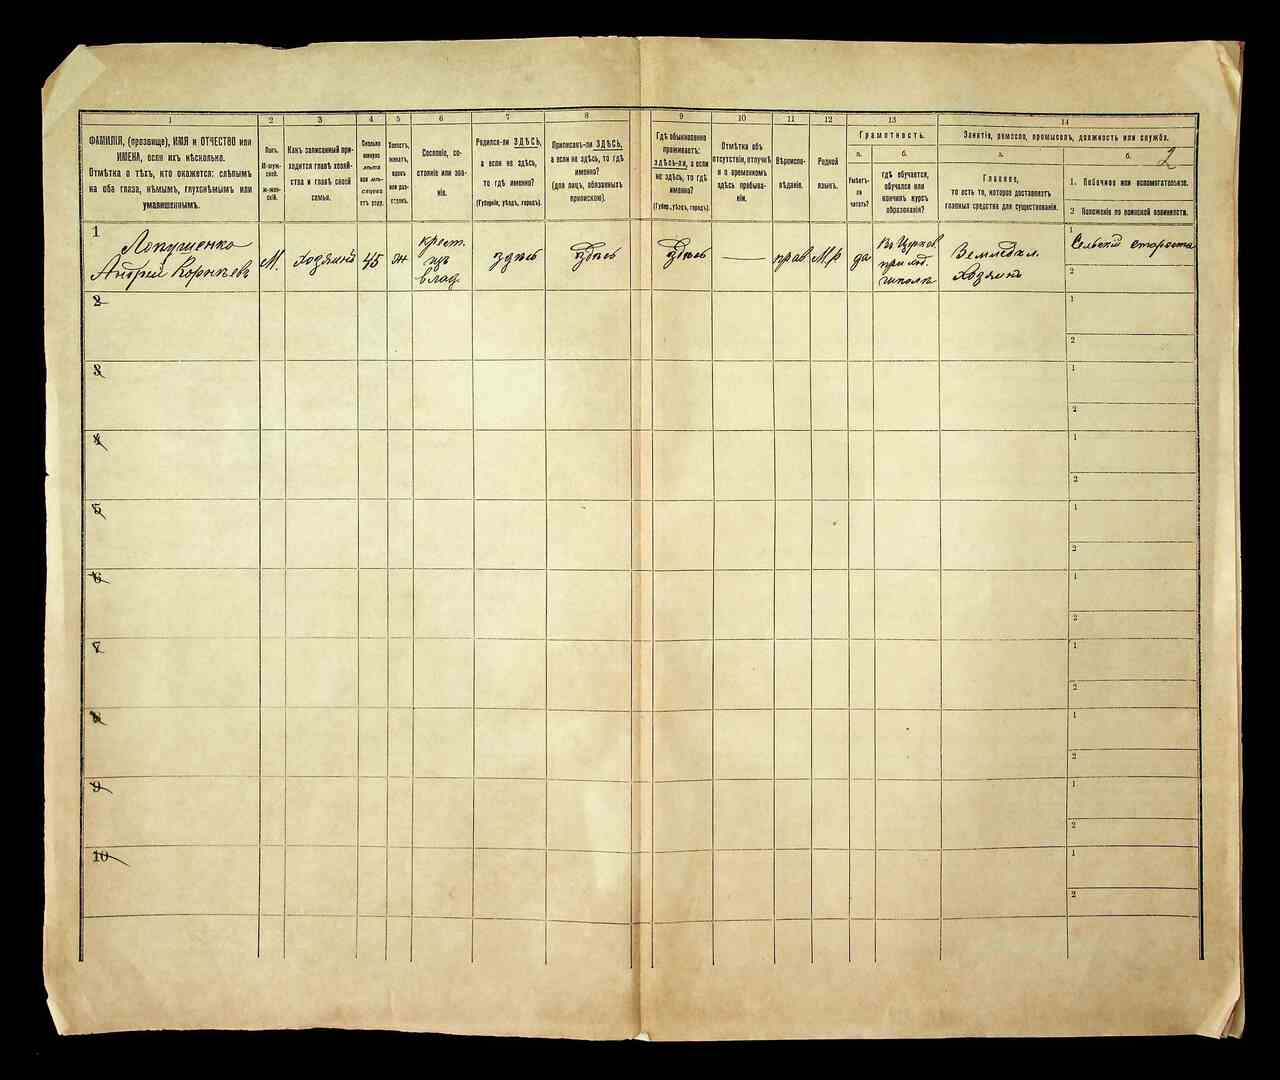 1 2 3 4 5 6 7 8 9 10 11 12 13 14
ФАМИЛІЯ, (прозвище), ИМЯ и ОТЧЕСТВО или
ИМЕНА, если ихъ нѣсколько.
Отмѣтка о тѣхъ, кто окажется: слѣпымъ
на оба глаза, нѣмымъ, глухонѣмымъ или
умалишеннымъ.
Полъ.
М-муж-
ской.
ж-жен-
скій.
Какъ записанный при-
ходится главѣ хозяй-
ства и главѣ своей
семьи.
Сколько
минуло
лѣтъ
или мѣ-
сяцевъ
отъ роду.
Холостъ,
женатъ,
вдовъ
или раз-
веденъ.
Сословіе, со-
стояніе или зва-
ніе.
Родился-ли ЗДѢСЬ,
а если не здѣсь,
то гдѣ именно?
(Губернія, уѣздъ, городъ).
Приписанъ-ли ЗДѢСЬ,
а если не здѣсь, то гдѣ
именно?
(для лицъ, обязанныхъ
припискою).
Гдѣ обыкновенно
проживаетъ:
здѣсь-ли, а если
не здѣсь, то гдѣ
именно?
(Губер., уѣздъ, городъ).
Отмѣтка объ
отсутствіи, отлучкѣ
и о временномъ
здѣсь пребыва-
ніи.
Вѣроиспо-
вѣданіе.
Родной
языкъ.
Грамотность.
а.
Умѣетъ-
ли
читать?
б.
гдѣ обучается,
обучался или
кончилъ курсъ
образованія?
Занятіе, ремесло, промыселъ, должность или служба.
а.
Главное,
то есть то, которое доставляетъ
главныя средства для существованія.
б.
2
1. Побочное или вспомогательное.
2 Положеніе по воинской повинности.
1
Лопушенко
Андрей Корнѣевъ
М.
хозяинъ
45
ж
крест.
изъ
влад.
здѣсь
здѣсь
здѣсь
прав
М.р
да
Въ Церков.
приход.
школѣ
Землѣдѣл.
хозяинъ
1
Сельскій староста
2
2
1
2
3
1
2
4
1
2
5
1
2
6
1
2
7
1
2
8
1
2
9
1
2
10
1
2